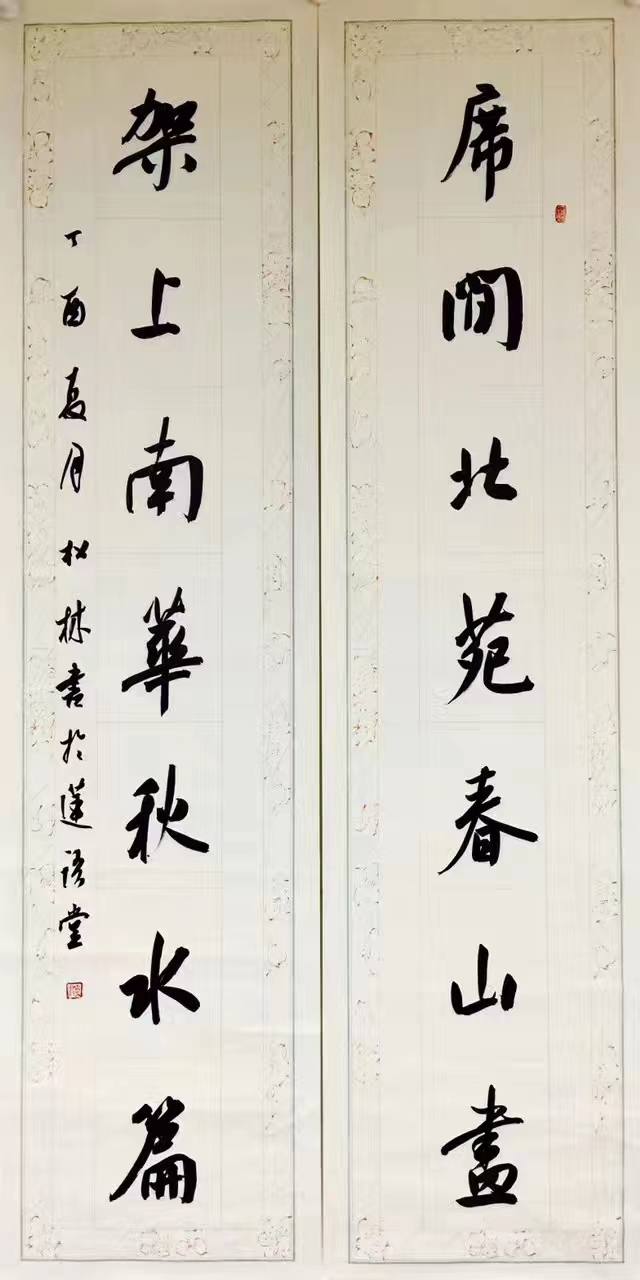 席間北苑春山畫
架上南華秋水篇
丁酉夏月松林書於蓮語堂